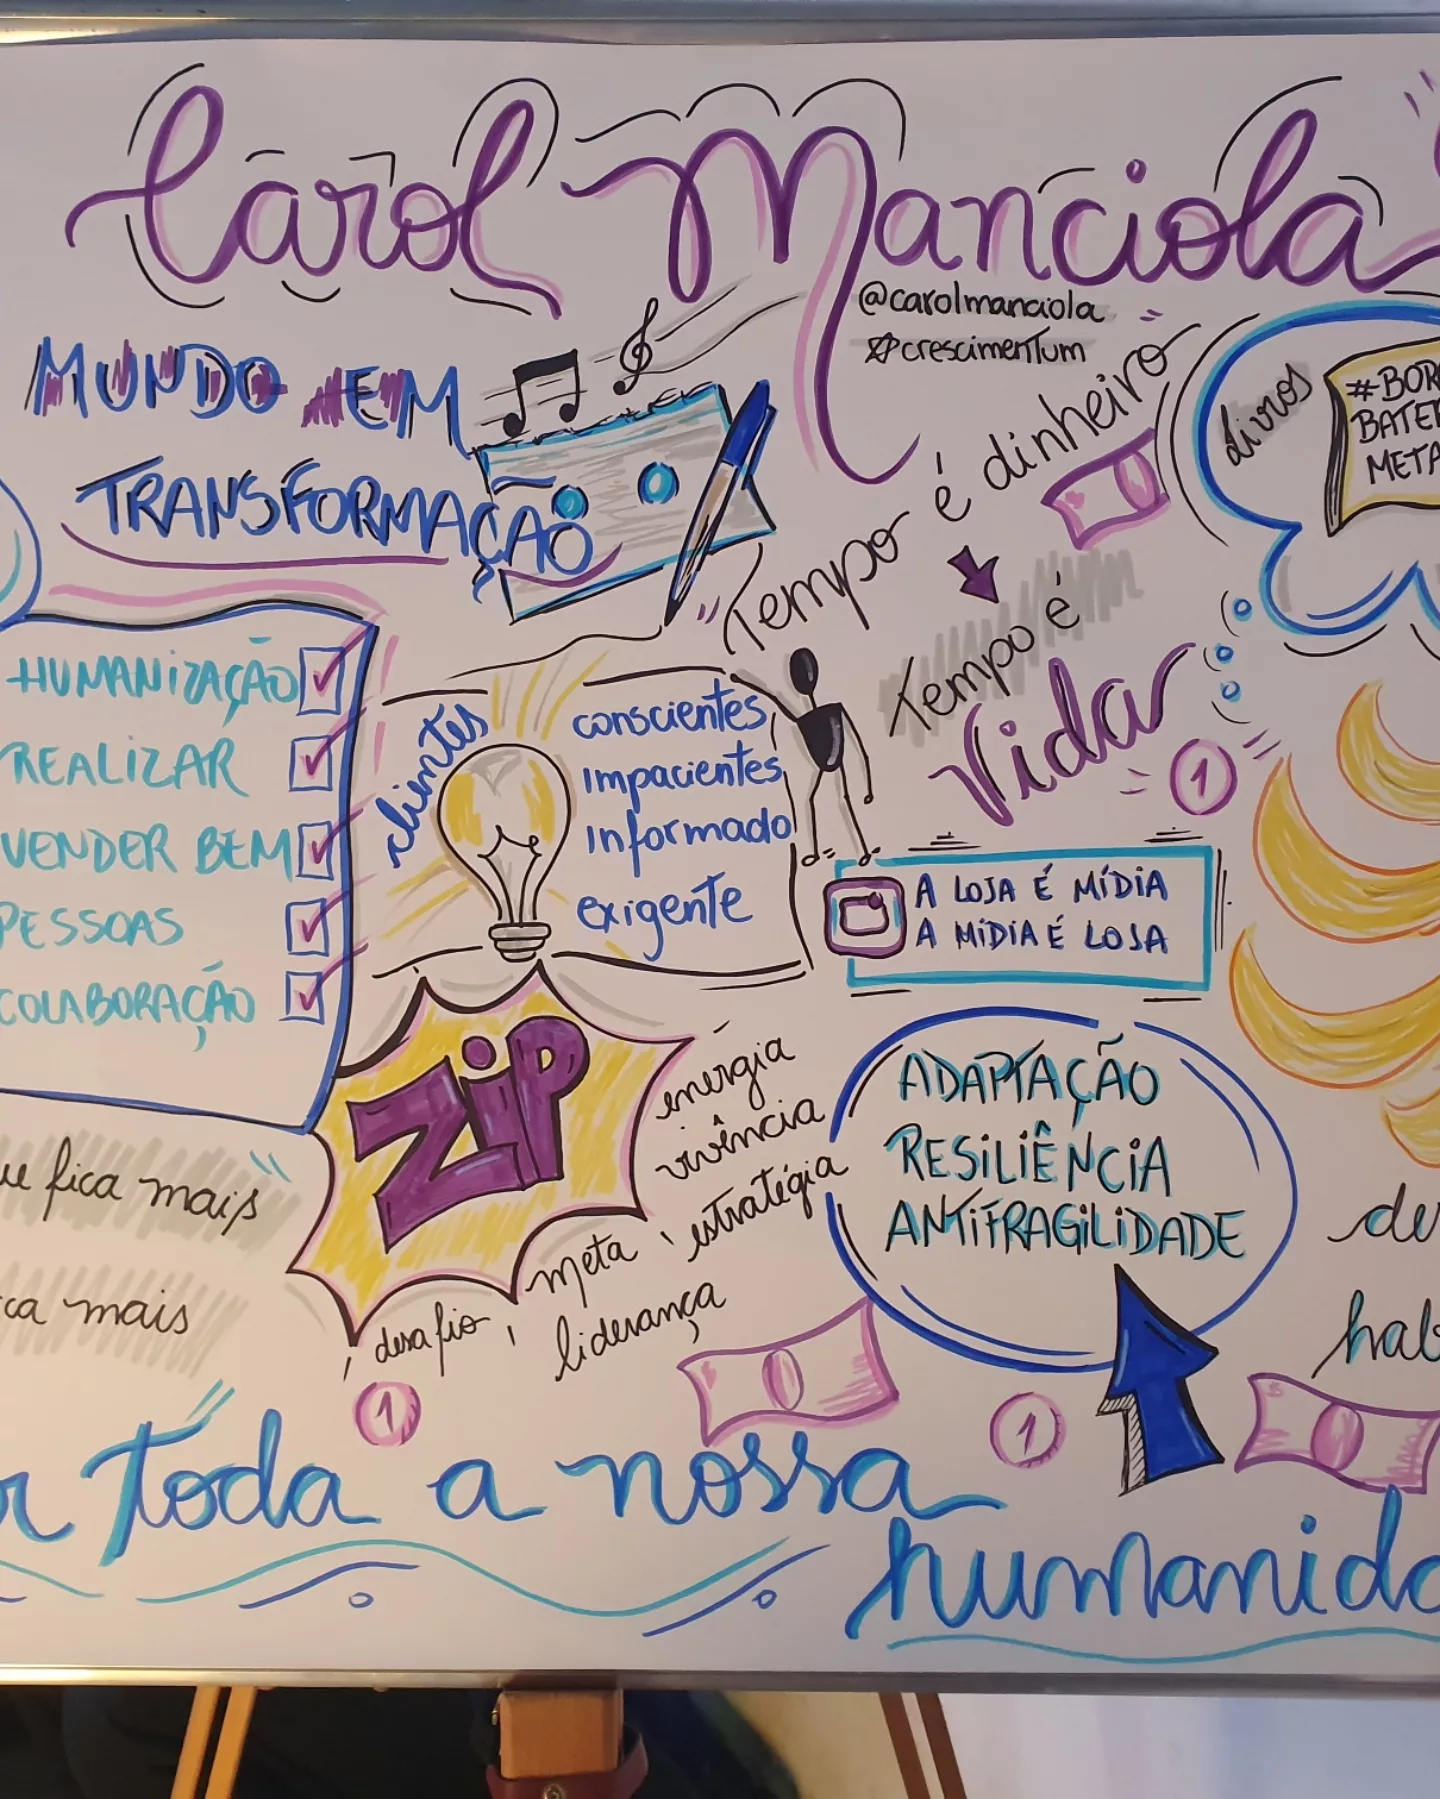 Carol Manciola
@carolmanciola
crescimentum
MUNDO EM
TRANSFORMAÇÃO
Tempo é dinheiro
Tempo é
Vida
livros
#BOR
BATER
META
HUMANIZAÇÃO
REALIZAR
VENDER BEM
PESSOAS
COLABORAÇÃO
clientes
conscientes
impacientes
informado
exigente
1
A LOJA É MÍDIA
A MÍDIA É LOJA
ZiP
energia
vivência
estratégia
meta
desafio,
liderança
ADAPTAÇÃO
RESILIÊNCIA
ANTIFRAGILIDADE
ue fica mais
ca mais
de
hab
1
1
r toda a nossa
humanida